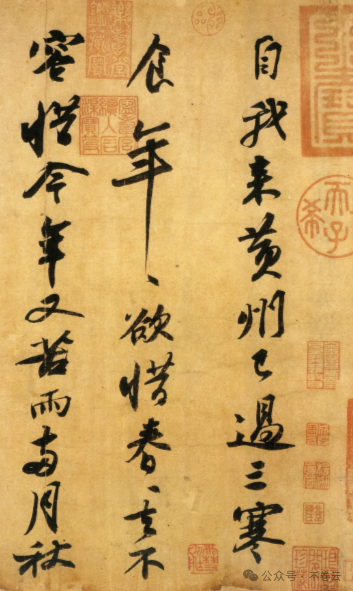 自我来黄州已過三寒
食年〻欲惜春〻去不
容惜今年又苦雨兩月秋
天子
希
公众号·不卷云